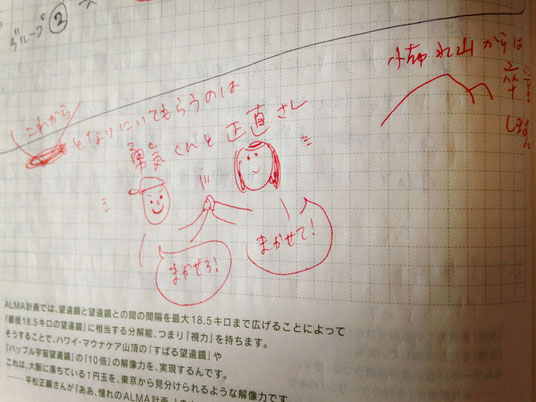 グループ②
これから
となりにいてもらうのは
勇気くんと正直さん
まかせろ!
まかせて!
山からは
卒
ALMA計画では、望遠鏡と望遠鏡との間の間隔を最大18.5キロまで広げることによって
「直径18.5キロの望遠鏡」に相当する分解能、つまり「視力」を持ちます。
そうすることで、ハワイ・マウナケア山頂の「すばる望遠鏡」や
「ハッブル宇宙望遠鏡」の「10倍」の解像力を、実現するんです。
これは、大阪に落ちている1円玉を、東京から見分けられるような解像力です
平松正顕さんが「ああ、憧れのALMA計画。